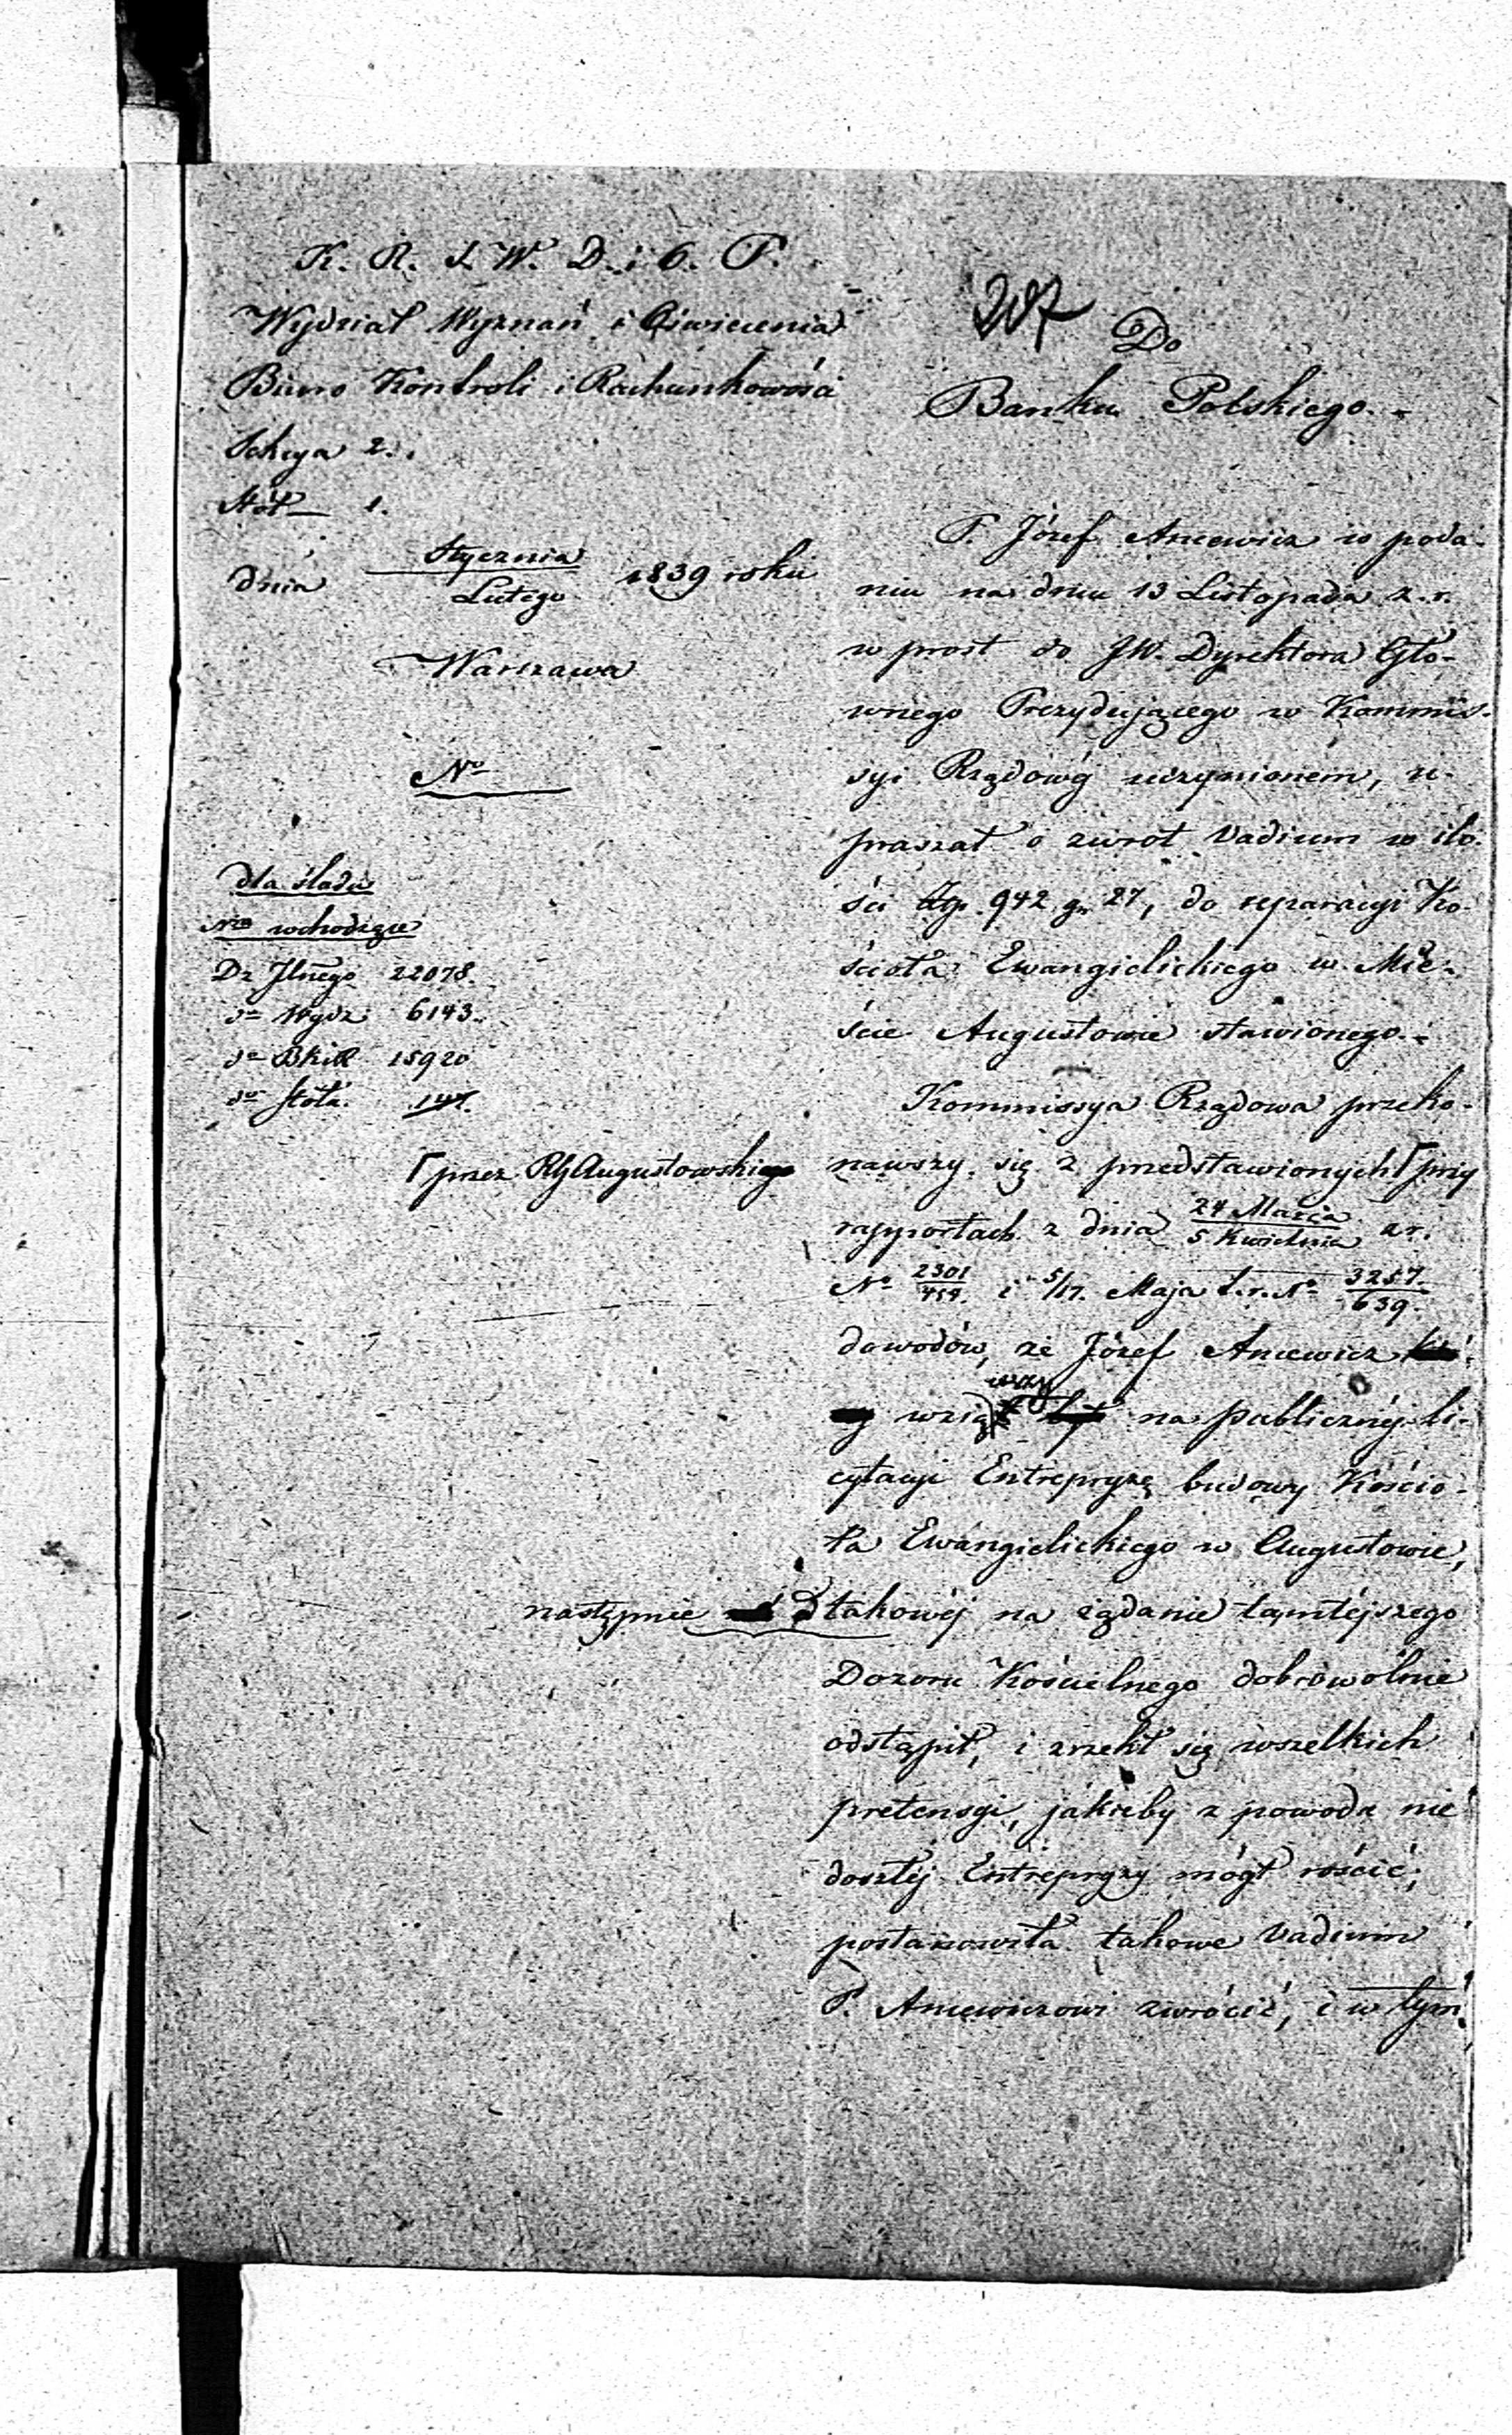 K. R. S. W. D. i O. P.
Wydział Wyznań i Oświecenia
Biuro Kontroli i Rachunkowości
Sekcya 2.
Stół 1.
dnia Stycznia/Lutego 1839 roku
Warszawa
No
dla śladu
Nra wchodzące
Dz Jlnego 22078.
do Wydz 6143.
do BKiR 15920
do Stołu.
207
Do
Banku Polskiego.
P. Józef Ancewicz w poda-
niu na dniu 13 Listopada z. r.
w prost do JW. Dyrektora Głó-
wnego Prezydującego w Kommis-
syi Rządowéj uczynioném, u-
praszał o zwrot Vadium w ilo-
ści Złp. 942 gr 27, do reparacyi Ko-
ścioła Ewangielickiego w Mie-
ście Augustowie stawionego.
Kommissya Rządowa przeko-
nawszy się z przedstawionych ⌈przy
⌈przez RGAugustowski
rapportach z dnia 24 Marca/5 Kwietnia z r.
No 2301/459. i 5/17. Maja t. r. No 3257./639.
dowodów, że Józef Ancewicz
wziąwszy na publicznéj li-
cytacyi Entrepryzę budowy Kościo-
ła Ewangielickiego w Augustowie,
następnie takowéj na żądanie tamtéjszego
Dozoru Kościelnego dobrowolnie
odstąpił, i zrzekł się wszelkich
pretensyi, jakieby z powodu nie
doszłéj Entrepryzy mógł rościć,
postanowiła takowe Vadium
P. Ancewiczowi zwrócić, i w tym